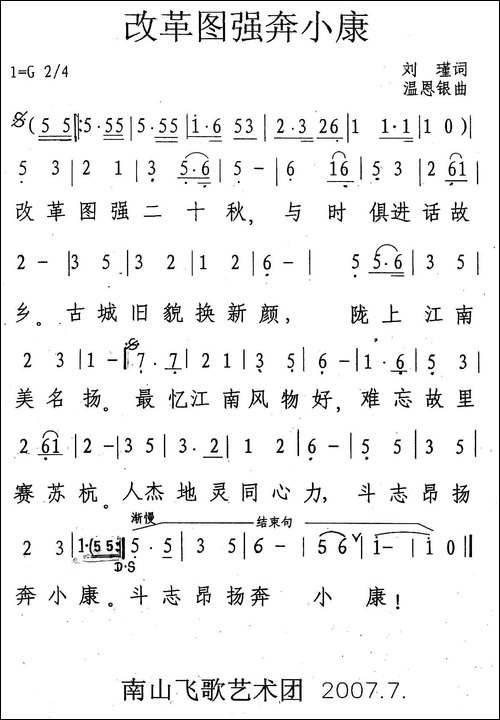 改革图强奔小康
1=G 2/4
刘 瑾词
温恩银曲
(5 5‖:5·55|5·55|i·6 53|2·3 26|1 1·1|1 0)|
5 3|2 1|3 5·6|5-|6 16|5 3|2 61|
改革图强二十秋，与时俱进话故
2-|3 5|3 2|1 2|6-| 5 5·6|2 3|
乡。古城旧貌换新颜， 陇上江南
2 3|1-‖7·7|2 1|2 5|6-|1·6|5 3|
美名扬。最忆江南风物好，难忘故里
2 61|2-|3 5|3·2|1 2|6-|5 5|3 5|
赛苏杭。人杰地灵同心力，斗志昂扬
渐慢 结束句
2 3|1·(55:‖5·5|3 5|6-|5 6 ∨|i-|i 0‖
D·S
奔小康。斗志昂扬奔 小 康！
南山飞歌艺术团 2007.7.